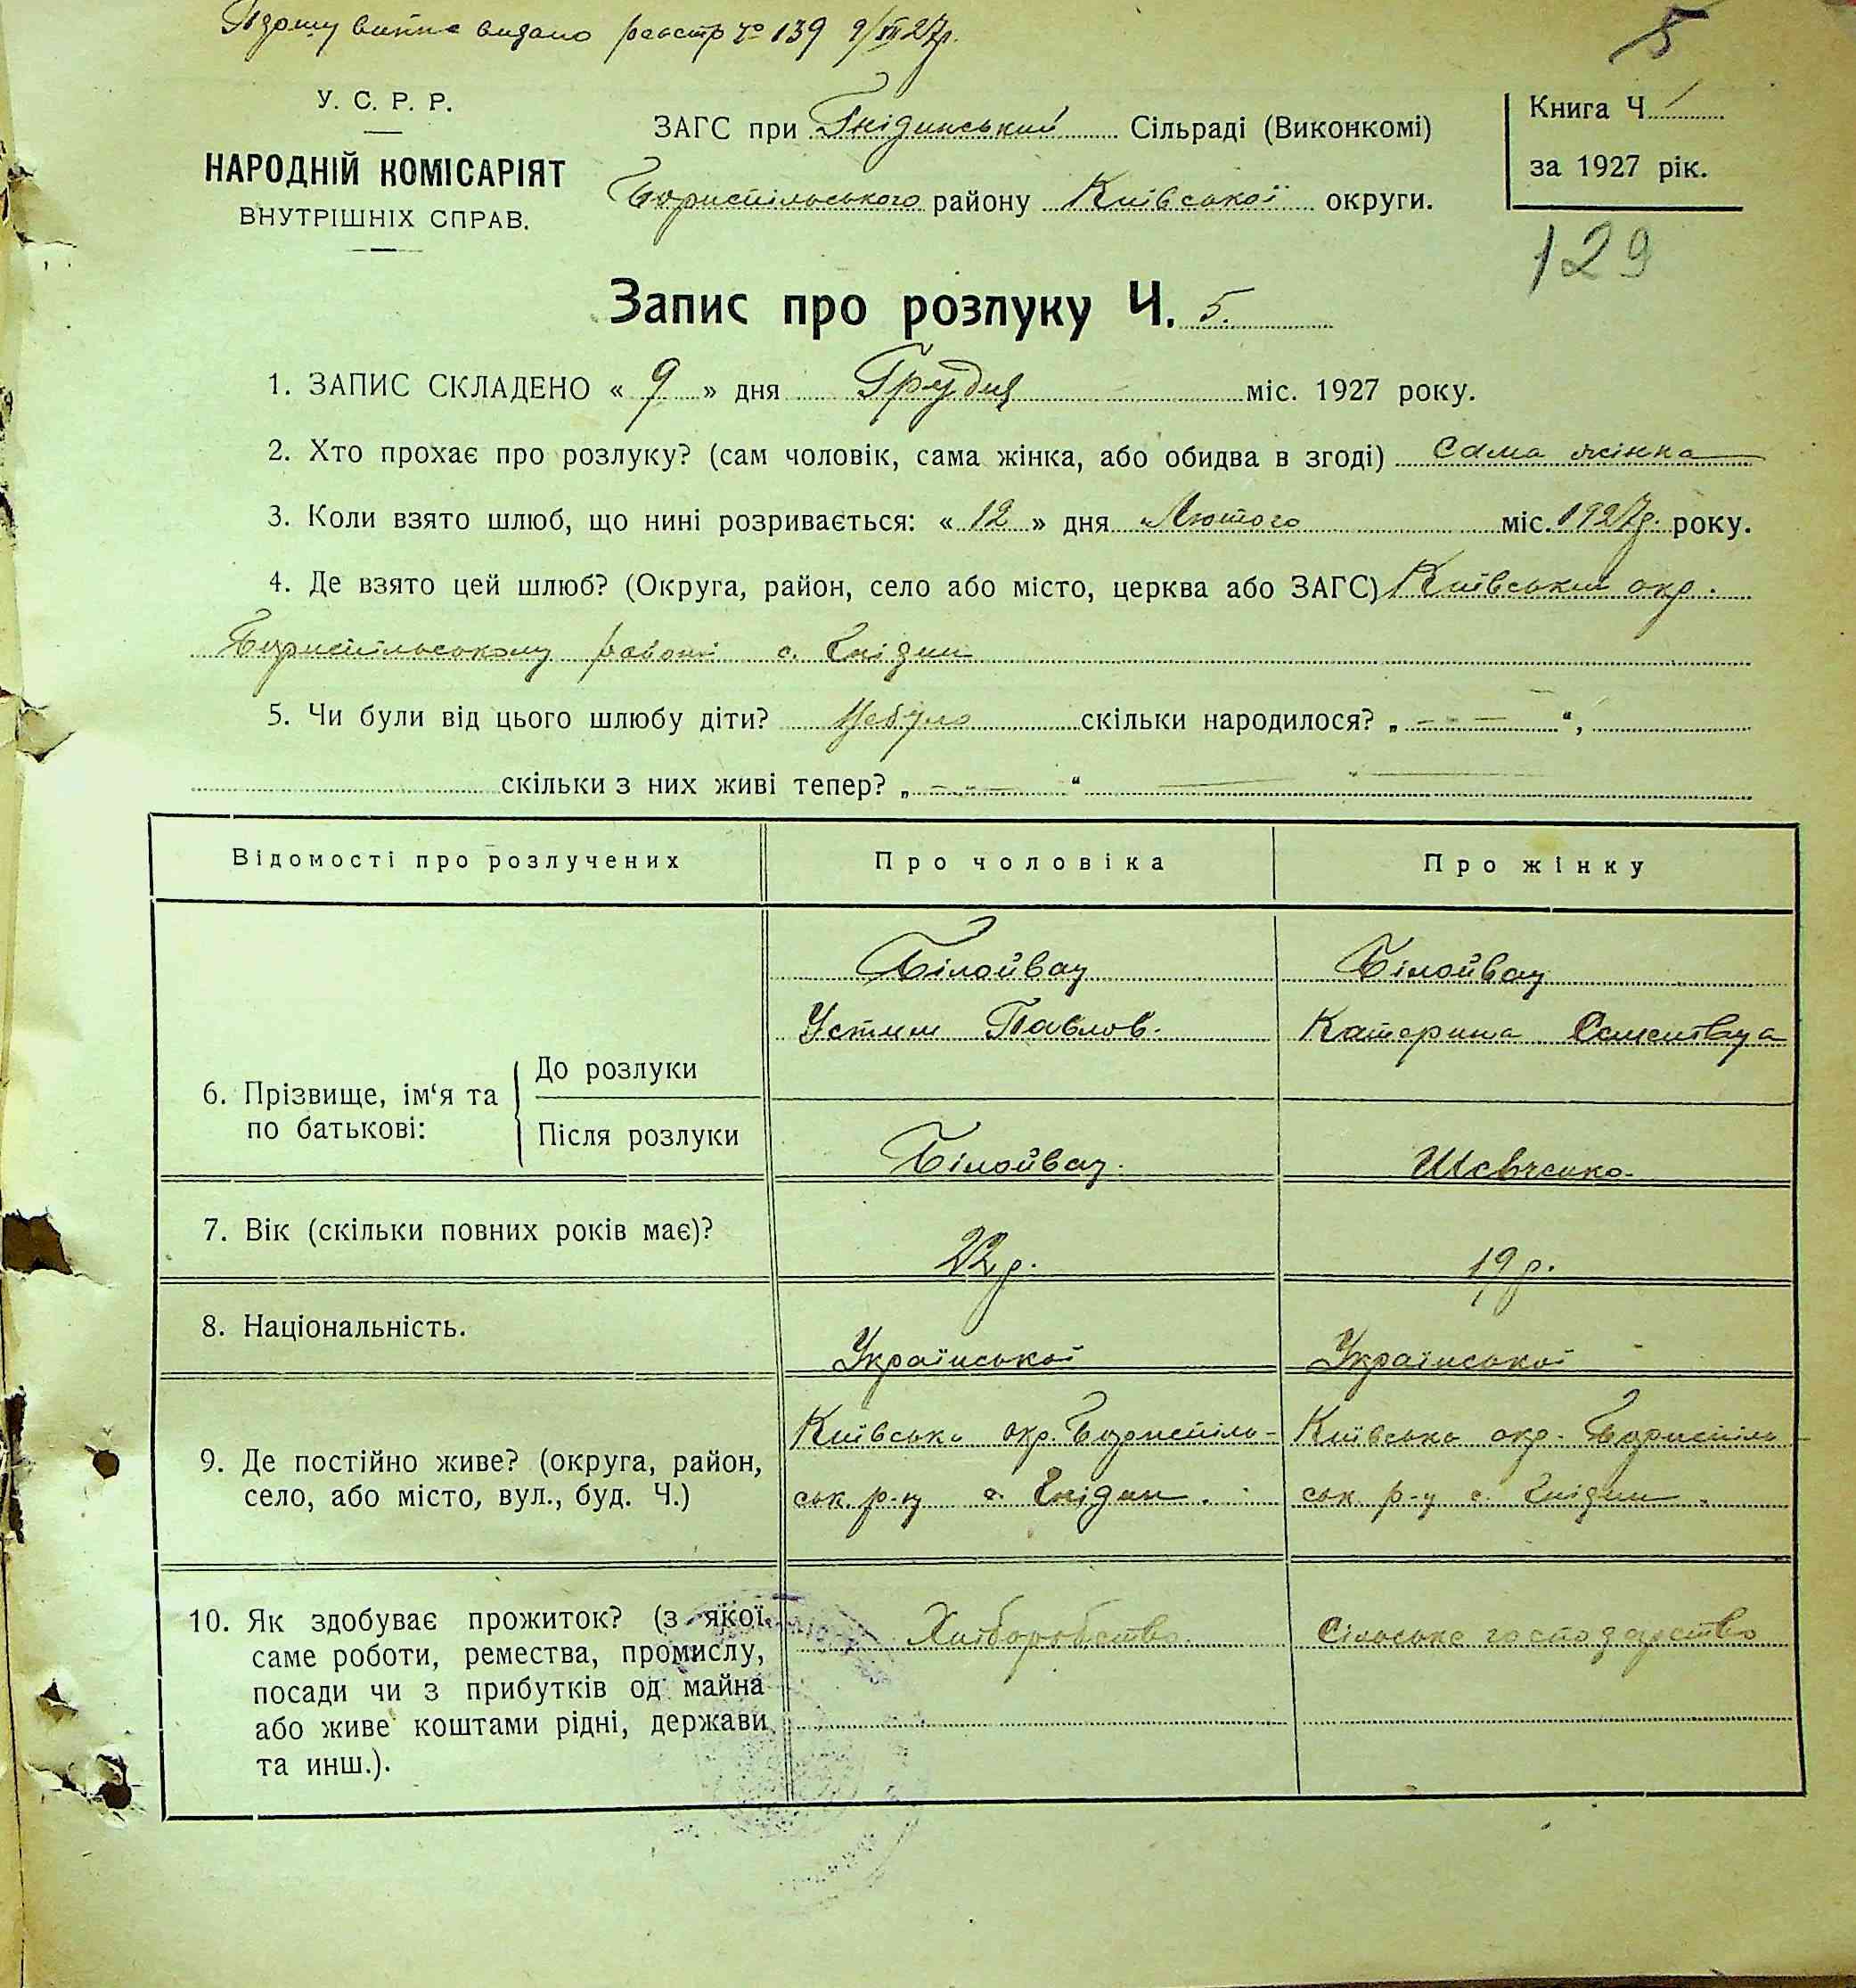 видано реєстр № 139 9/XII 27р.
5
У. С. Р. Р.
НАРОДНІЙ КОМІСАРІЯТ
ВНУТРІШНІХ СПРАВ.
ЗАГС при Гнідинський Сільраді (Виконкомі)
Бориспільського району Київської округи.
Книга Ч. 1
за 1927 рік.
129
Запис про розлуку Ч. 5.
1. ЗАПИС СКЛАДЕНО « 9 » дня Грудня міс. 1927 року.
2. Хто прохає про розлуку? (сам чоловік, сама жінка, або обидва в згоді) Сама жінка
3. Коли взято шлюб, що нині розривається: « 12 » дня Лютого міс. 1927р. року.
4. Де взято цей шлюб? (Округа, район, село або місто, церква або ЗАГС) Київський окр.
Бориспільському районі с. Гнідин
5. Чи були від цього шлюбу діти? Небуло скільки народилося? „ - - - “,
скільки з них живі тепер? „ - - - “
Відомості про розлучених
Про чоловіка
Про жінку
6. Прізвище, ім‘я та
по батькові:
До розлуки
Після розлуки
Білойван
Устим Павлов.
Білойван.
Білойван
Катерина
Шевченко.
7. Вік (скільки повних років має)?
22 р.
19 р.
8. Національність.
Української
Української
9. Де постійно живе? (округа, район,
село, або місто, вул., буд. Ч.)
Київська окр. Бориспіль-
ськ. р-н с. Гнідин.
Київська окр. Бориспіль-
ськ. р-н с. Гнідин.
10. Як здобуває прожиток? (з якої
саме роботи, ремества, промислу,
посади чи з прибутків од майна
або живе коштами рідні, держави
та инш.).
Хліборобство.
Сільське господарство